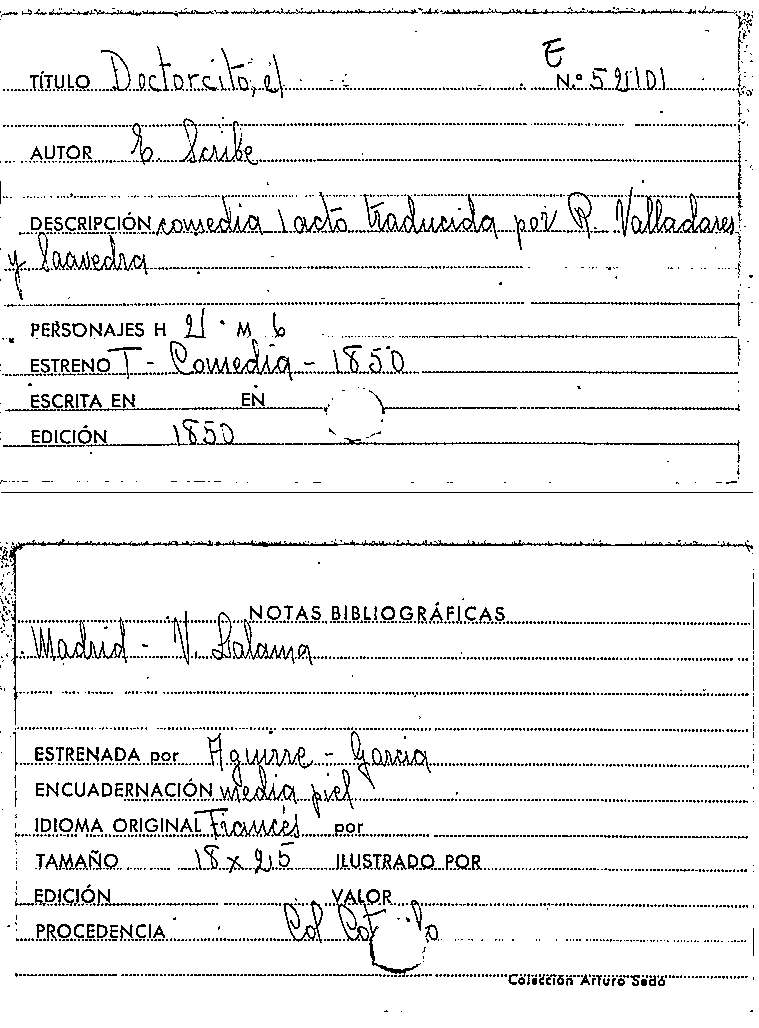 E
TÍTULO Doctorcito, el N.º 52101
AUTOR E. Scribe
DESCRIPCIÓN comedia 1 acto traducida por R. Valladares
y Saavedra
PERSONAJES H 2 M 6
ESTRENO T - Comedia - 1850
ESCRITA EN EN
EDICIÓN 1850
NOTAS BIBLIOGRÁFICAS
Madrid - V. Lalama
ESTRENADA por Aguirre - Garcia
ENCUADERNACIÓN media piel
IDIOMA ORIGINAL Francés por
TAMAÑO 18 x 25 ILUSTRADO POR
EDICIÓN VALOR
PROCEDENCIA Col
Colección Arturo Sedó